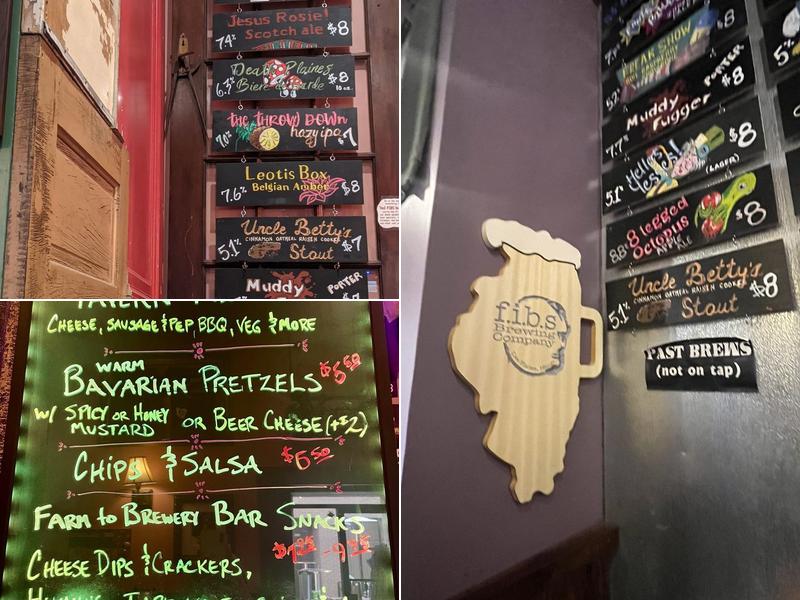 Jesus Rosie!
Scotch ale
7.4%
$8
Death Plaines
Bière de Garde
$8
the THROW DOWN
hazy ipa
7.0%
$7
Leotis Box
Belgian Amber
7.6%
$8
Uncle Betty's
CINNAMON OATMEAL RAISEN COOKIE
Stout
5.1%
$7
Muddy
PORTER
CHEESE, SAUSAGE & PEP, BBQ, VEG & MORE
WARM
BAVARIAN PRETZELS
$5.50
W/ SPICY OR HONEY
MUSTARD
OR BEER CHEESE (+$2)
CHIPS & SALSA
$6.50
FARM to BREWERY BAR SNACKS
CHEESE DIPS & CRACKERS,
f.i.b.s
Brewing
Company
$8
FREAK SHOW
$8
Muddy
Fugger
PORTER
7.7%
$8
Helles
Yesch!
(LAGER)
5.1%
$8
8 legged
Octopus
APPLE
$8
Uncle Betty's
CINNAMON OATMEAL RAISEN COOKIE
Stout
5.1%
$8
PAST BREWS
(not on tap)